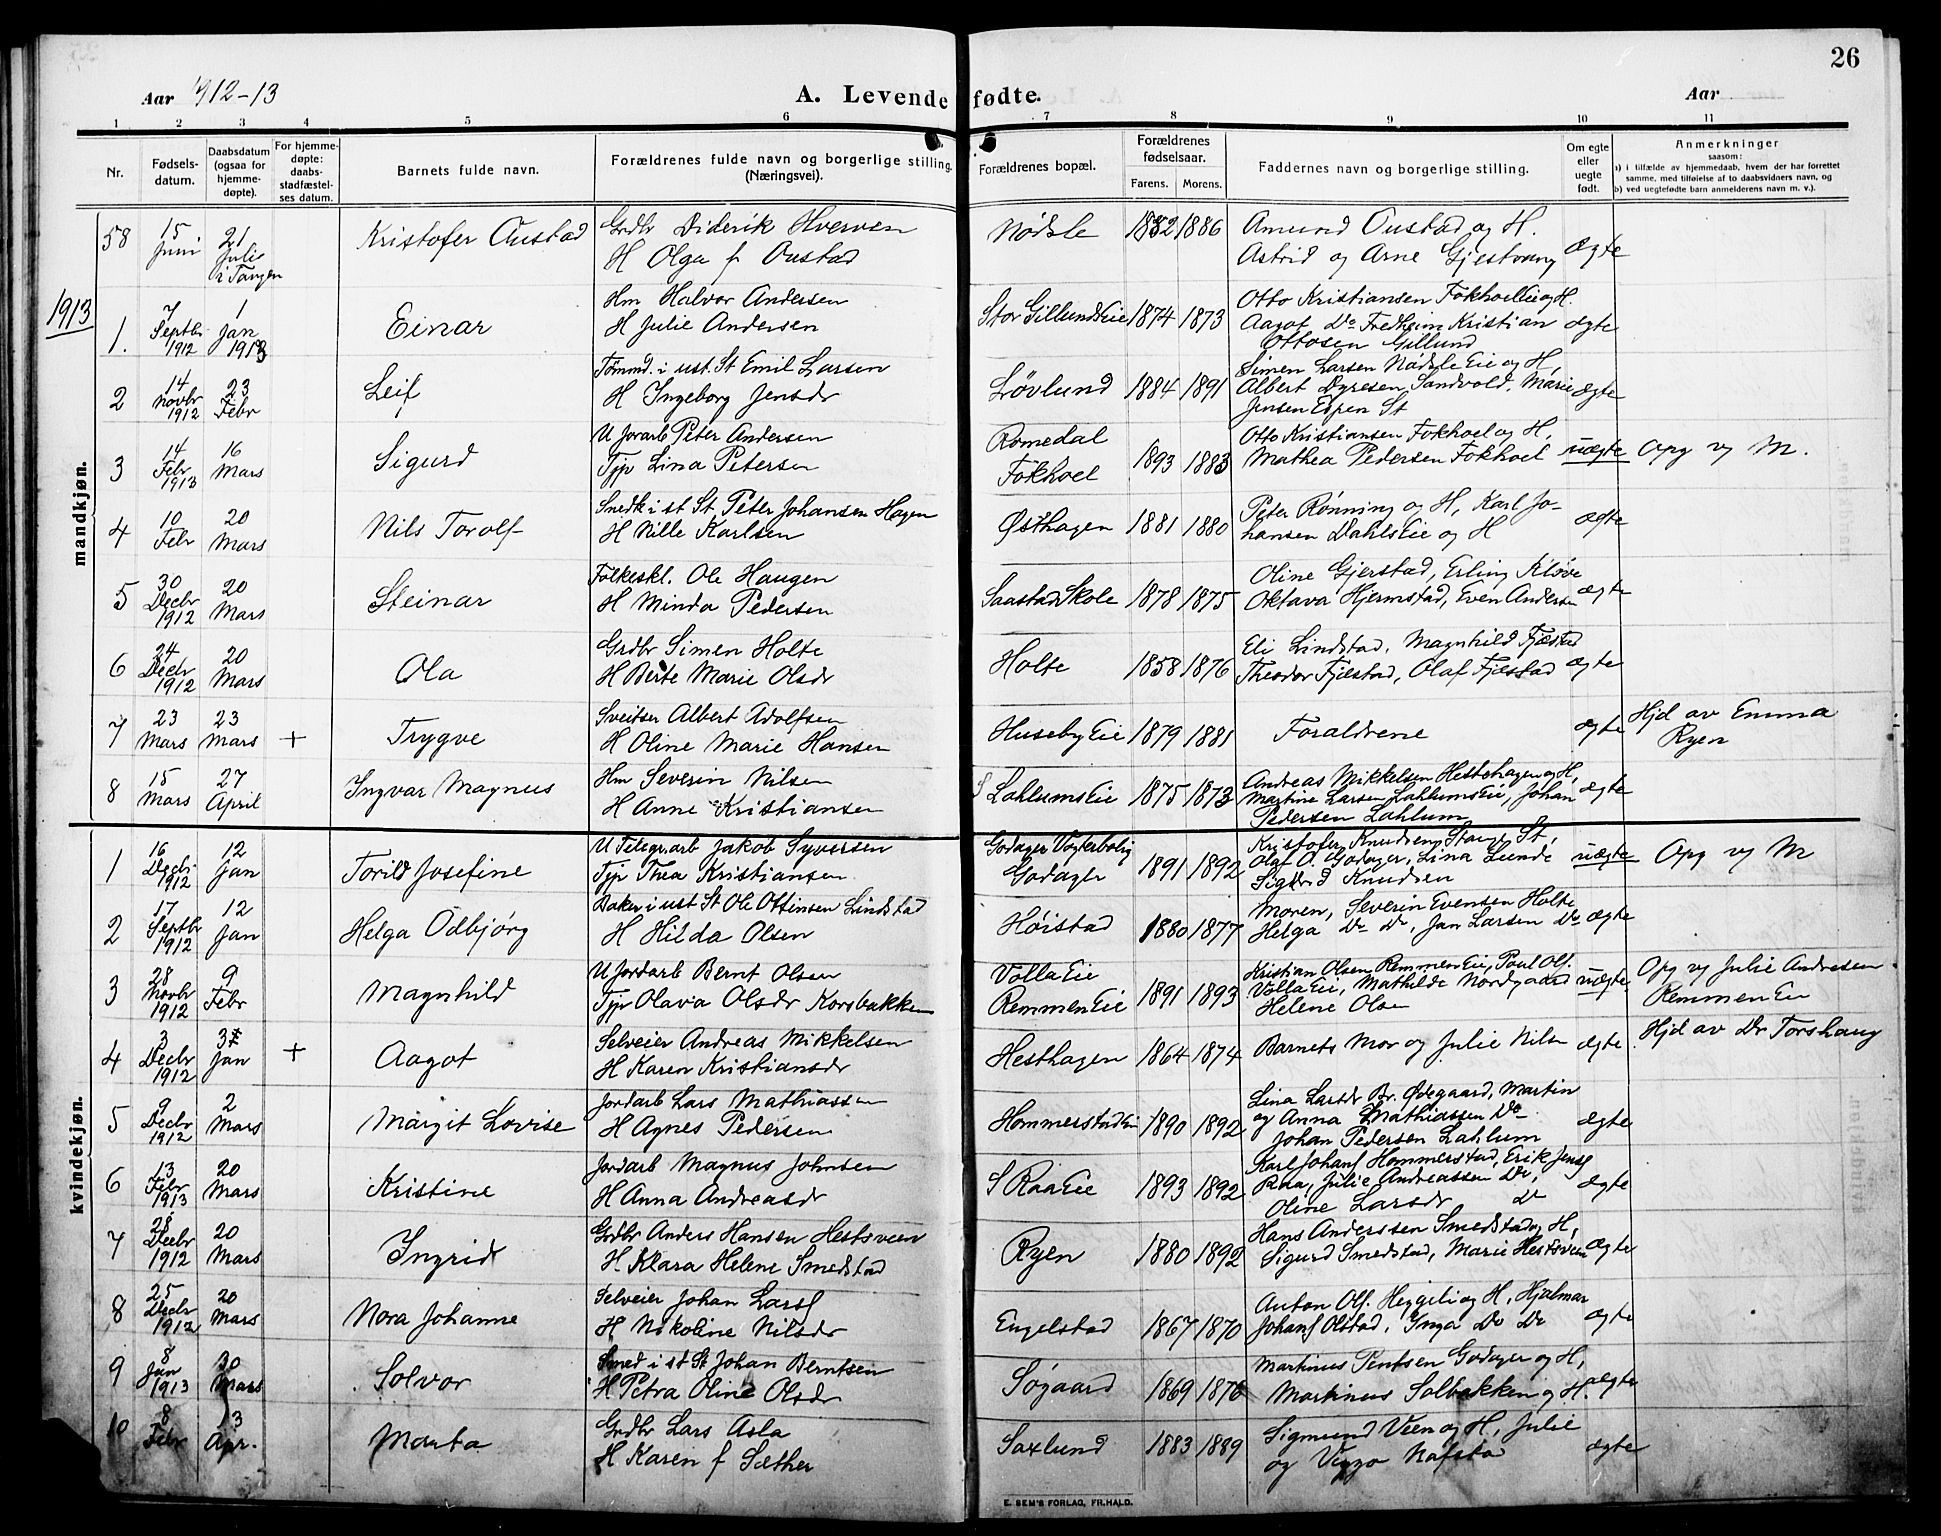 26
Aar 1912-13 A. Levende fødte. Aar
1 2 3 4 5 6 7 8 9 10 11
Nr. Fødsels-datum. Daabsdatum (ogsaa for hjemme-døpte). For hjemme-døpte: daabs-stadfæstel-ses datum. Barnets fulde navn. Forældrenes fulde navn og borgerlige stilling. (Næringsvei). Forældrenes bopæl. Forældrenes fødselsaar. Farens. Morens. Faddernes navn og borgerlige stilling. Om egte eller uegte født. Anmerkninger saasom: a) i tilfælde av hjemmedaab, hvem der har forrettet samme, med tilføielse af to daabsvidners navn, og b) ved uegtefødte barn anmelderens navn m. v.).
mandkjøn.
58 15 Juni 21 Julie i Tangen Kristofer Oustad Grdbr Diderik Hverven Nødsle 1882 1886 Amund Oustad og H.
H Olga f Oustad Astrid og Arne Gjestvang ægte
1913
1. 7 Septbr 1912 1 Jan 1913 Einar Hm Halvor Andersen Stor Gillunds Eie 1874 1873 Otto Kristiansen Fokhol Eie og H.
H Julie Andersen Aagot Do Fredheim Kristian ægte
Ottosen Gillund
2 14 Novbr 1912 23 Febr Leif Tømmd. i ust. St Emil Larsen Løvlund 1884 1891 Simen Larsen Nødsle Eie og H,
H Ingeborg Jensdr Albert Dyresen Sandvold, Marie ægte
Jensen Espen St
3 14 Febr 1913 16 Mars Sigurd U Jorarb Peter Andersen Romedal 1893 1883 Otto Kristiansen Fokhoel og H,
Tjp Lina Petersen Fokhoel Mathea Pedersen Fokhoel uægte Opg v M.
4 10 Febr 20 Mars Nils Torolf Snedk i st St Peter Johansen Hagen Østhagen 1881 1880 Peter Rønning og H, Karl Jo-
H Nille Karlsen hansen Dahls Eie og H ægte
5 30 Decbr 1912 20 Mars Steinar Folkeskl. Ole Haugen Saastad Skole 1878 1875 Oline Gjerstad, Erling Kløve
H Minda Pedersen Oktava Hjermstad, Even Andersen ægte
6 24 Decbr 1912 20 Mars Ola Grdbr Simen Holte Holte 1858 1876 Eli Lindstad, Magnhild Fjæstad
H Berte Marie Olsdr Theodor Fjæstad, Olaf Fjæstad ægte
7 23 Mars 23 Mars + Trygve Sveitser Albert Adolfsen Huseby Eie 1879 1881 Foraldrene ægte Hjd av Emma
H Oline Marie Hansen Ryen
8 15 Mars 27 April Ingvar Magnus Hm Severin Nilsen S Lahlums Eie 1875 1873 Andreas Mikkelsen Hestehagen og H,
H Anne Kristiansen Martine Larsen Lahlums Eie, Johan ægte
Pedersen Lahlum
kvindekjøn.
1 16 Decbr 1912 12 Jan Torild Josefine U Telegr.arb Jakob Syversen Godager Vogterbolig 1891 1892 Kristofer Knudsen Stange St,
Tjp Thea Kristiansen Godager Olaf O. Godager, Lina Lunde uægte Opg v M
Sigurd Knudsen
2 17 Septbr 1912 12 Jan Helga Odbjørg Baker i ust St Ole Ottinsen Lindstad Høistad 1880 1877 Moren, Severin Evensen Holte
H Hilda Olsen Helga Do Do, Jan Larsen Do ægte
3 28 Novbr 1912 9 Febr Magnhild U Jordarb Bernt Olsen Volla Eie 1891 1893 Kristian Olsen Remmen Eie, Paul Ols.
Tjp Olava Olsdr Korsbakken Remmen Eie Volla Eie, Mathilde Nordgaard uægte Opg v Julie Andresen
Helene Olsen Remmen Eie
4 3 Decbr 1912 3 Jan + Aagot Selveier Andreas Mikkelsen Hesthagen 1864 1874 Barnets Mor og Julie Nilsen ægte Hjd av Dr Torshaug
H Karen Kristiansdr
5 9 Decbr 1912 2 Mars Margit Lovise Jordarb Lars Mathiassen Hommerstad Eie 1890 1892 Lina Larsdr Br. Ødegaard, Martin
H Agnes Pedersen og Anna Mathiassen Do ægte
Johan Pedersen Lahlum
6 13 Febr 1913 20 Mars Kristine Jordarb Magnus Johnsen S Raa Eie 1893 1892 Karl Johans Hommerstad, Erik Jens
H Anna Andreasdr Raa, Julie Andreassen Do, ægte
Oline Larsdr Do
7 28 Decbr 1912 20 Mars Ingrid Grdbr Anders Hansen Hestsveen Ryen 1880 1892 Hans Anderssen Smedstad og H,
H Klara Helene Smedstad Sigurd Smedstad, Marie Hestsveen ægte
8 25 Decbr 1912 20 Mars Nora Johanne Selveier Johan Lars Engelstad 1867 1870 Anton Ols. Heggeli og H, Hjalmar
H Nikoline Nilsdr Johans Olstad, Inga Do Do ægte
9 8 Jan 1913 30 Mars Solvor Smed i st St Johan Berntsen Søgaard 1869 1876 Martinus Pentsen Godager og H,
H Petra Oline Olsdr Martinus Solbakken og H. ægte
10 8 Febr 13 Apr. Marta Grdbr Lars Asla Saxlund 1883 1889 Sigmund Veen og H, Julie
H Karen f Sæther og Viggo Nafstad ægte
E. SEM'S FORLAG, FR.HALD.